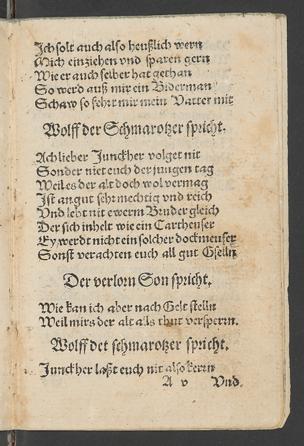 Ich solt auch also heußlich wern
Mich einziehen vnd sparen gern
Wie er auch selber hat gethan
So werd auß mir ein Biderman
Schaw so fehrt mir mein Vatter mit
Wolff der Schmarotzer spricht.
Ach lieber Junckher volget nit
Sonder niet euch der jungen tag
Weil es der alt doch wol vermag
Ist an gut sehr mechtig vnd reich
Vnd lebt nit ewerm Bruder gleich
Der sich inhelt wie ein Cartheuser
Ey werdt nicht ein solcher dockmeuser
Sonst verachten euch all gut Gselln
Der verlorn Son spricht.
Wie kan ich aber nach Gelt stelln
Weil mirs der alt alls thut versperrn.
Wolff det schmarotzer spricht.
Junckher laßt euch nit also kerrn
A v Vnd.